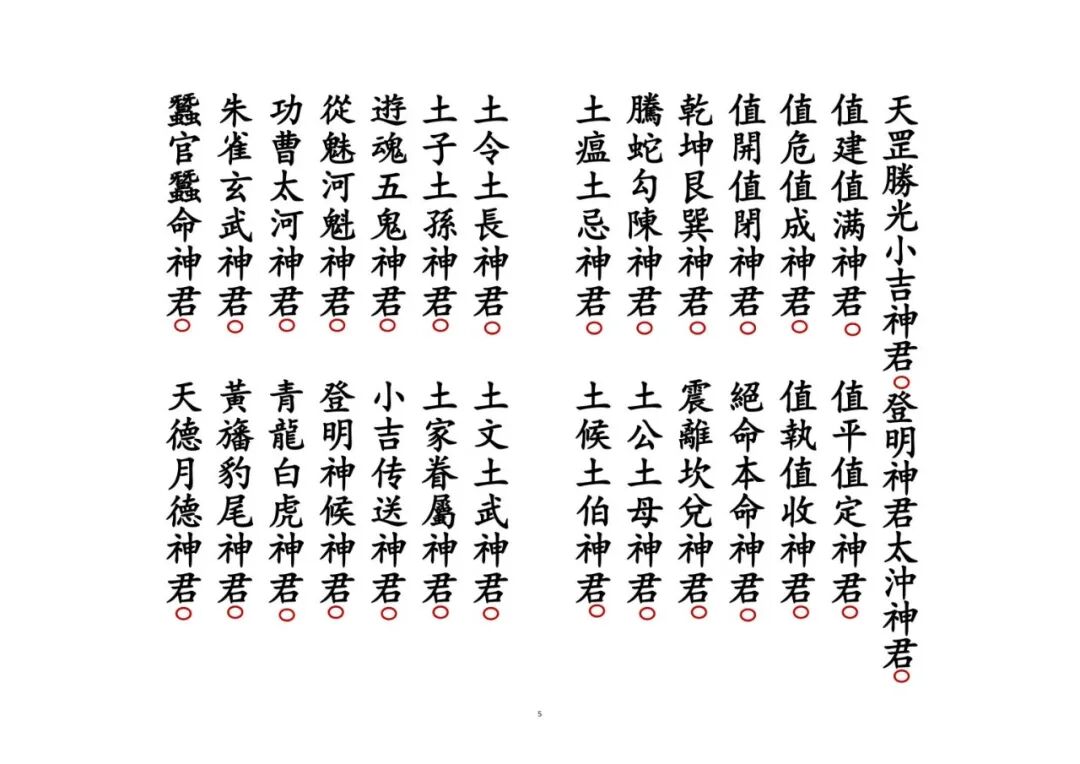 天罡勝光小吉神君○登明神君太沖神君○
值建值满神君○值平值定神君○
值危值成神君○值執值收神君○
值開值閉神君○絕命本命神君○
乾坤艮巽神君○震離坎兌神君○
騰蛇勾陳神君○土公土母神君○
土瘟土忌神君○土候土伯神君○
土令土長神君○土文土武神君○
土子土孫神君○土家眷屬神君○
遊魂五鬼神君○小吉传送神君○
從魅河魁神君○登明神候神君○
功曹太河神君○青龍白虎神君○
朱雀玄武神君○黃旛豹尾神君○
蠶官蠶命神君○天德月德神君○
5